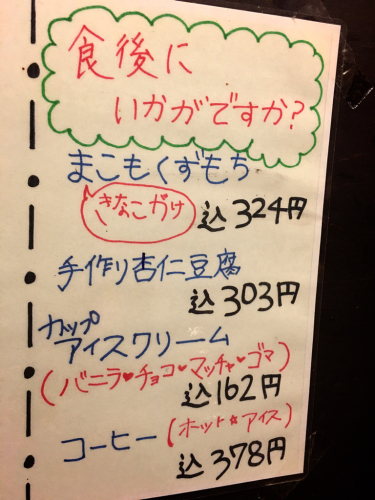 食後に
いかがですか?
まこもくずもち
きなこがけ
込324円
手作り杏仁豆腐
込303円
カップ
アイスクリーム
(バニラ♥チョコ♥マッチャ♥ゴマ)
込162円
コーヒー(ホット☆アイス)
込378円